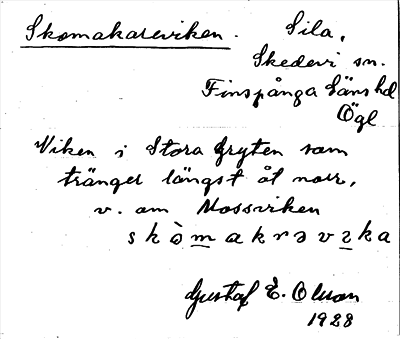 Skomakareviken. Sila,
Skedevi sn.
Finspånga läns hd
Ögl
Viken i Stora Gryten som
tränger längst åt norr,
v. om Mossviken
s k ò m a k r ə v ɿ k a
Gustaf E. Olsson
1928